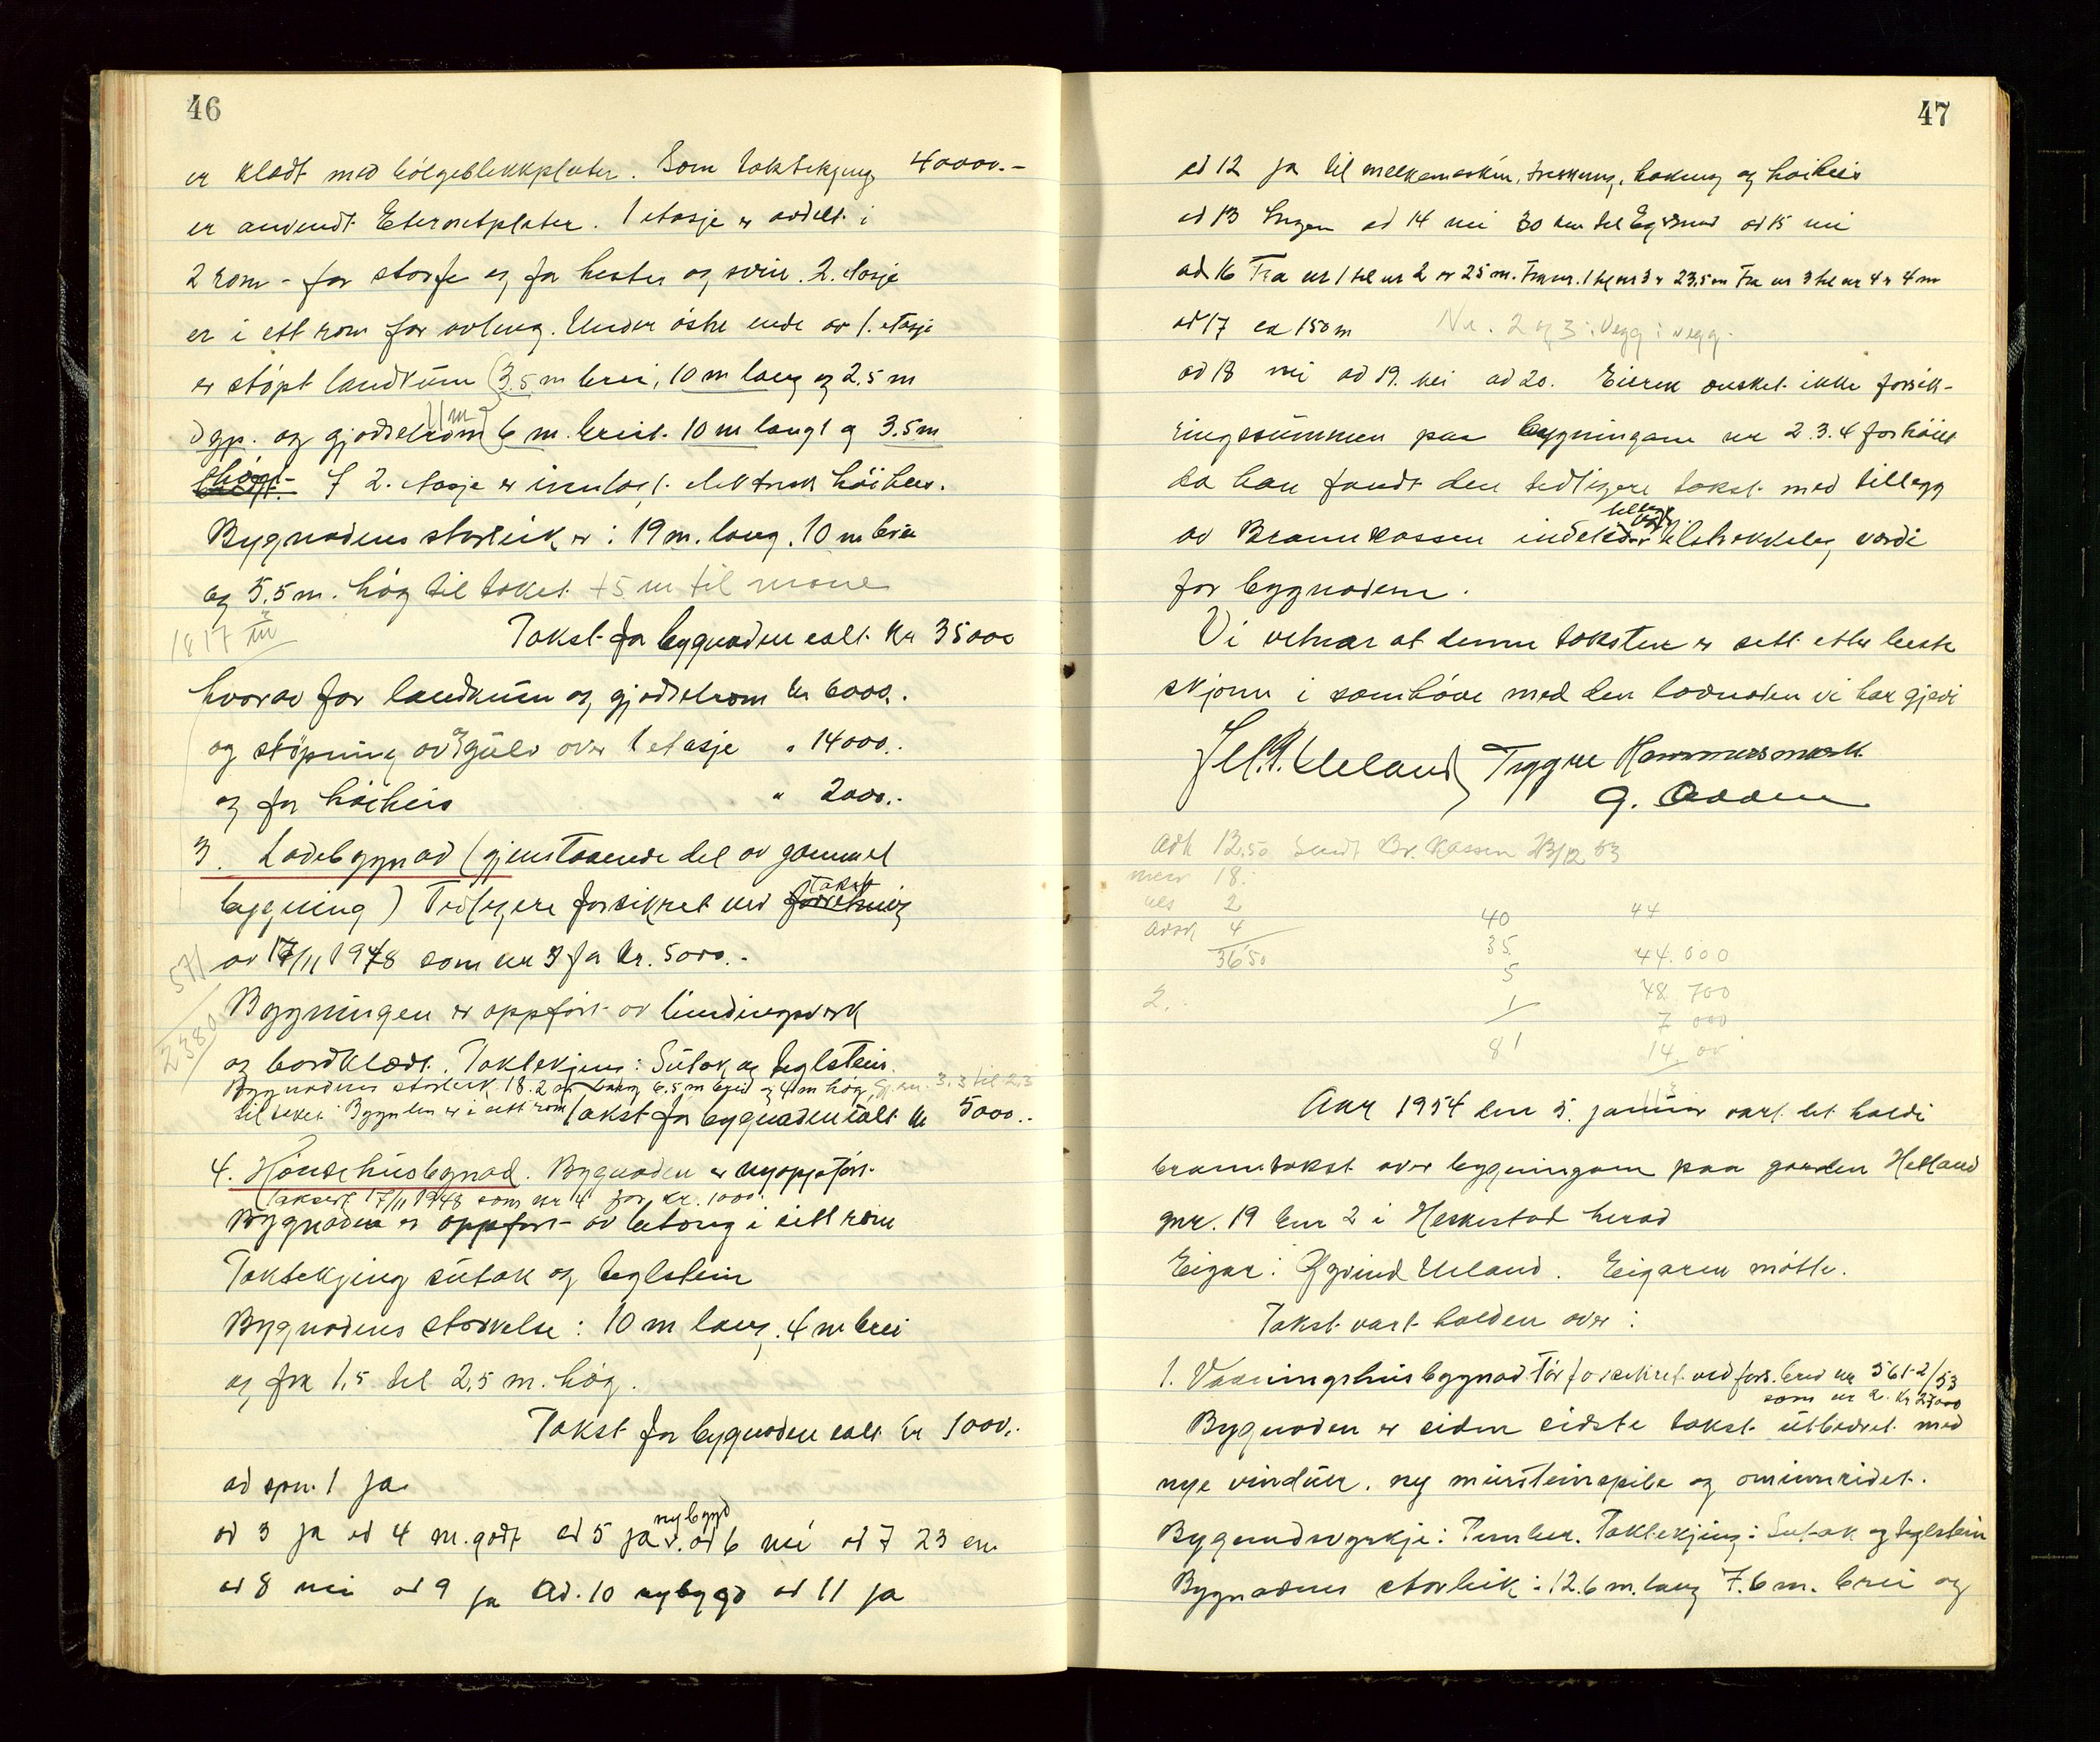 46
er kledt med bölgeblekkplater. Som taktekjing 40000.-
er anvendt Eternitplater. 1 etasje er avdelt i
2 rom - for storfe og for hester og svin. 2. etasje
er i ett rom for avling. Under östre ende av 1. etasje
er stöpt landkum (3,5 m brei, 10 m lang og 2,5 m
11 m
dyp. og gjödselrom 6 m. breit. 10 m langt og 3.5 m
högt. I 2. etasje er innlagt elektrisk höiheis.
Bygnadens storleik er: 19 m. lang. 10 m brei
og 5,5 m. hög til taket +5 m til möne
1817 m³
Takst for bygnaden ialt kr 35000
hvorav for landkum og gjödselrom kr 6000.-
og stöping av gulv over 1 etasje " 14000.-
og for höiheis " 2000.-
3. Ladebygnad (gjenstaaende del av gammel
bygning) Tidligere forsikret ved takst
av 17/11 1948 som nr 3 for kr. 5000.-
571
2380
Bygningen er oppfört av bindingsverk
og bordkledt. Taktekjing: Sutak og teglstein.
Bygnadens storleik 18.2 m lang 6.5 m breid og 4 m hög
til taket. Bygnaden er i eitt rom Takst for bygnaden ialt kr 5000.-
4. Hönsehusbygnad. Bygnaden er nyoppfört.
Taksert 17/11 1948 som nr 4 for kr. 1000.
Bygnaden er oppfört av betong i eitt rom
Taktekjing sutak og teglstein
Bygnadens storrelse: 10 m lang, 4 m brei
og fra 1,5 til 2,5 m. hög.
Takst for bygnaden ialt kr 1000.-
ad spm. 1 ja.
nybygd
ad 3 ja ad 4 m. godt ad 5 ja ad 6 nei ad 7 23 cm
ad 8 nei ad 9 ja ad. 10 nybygd ad 11 ja
47
ad 12 ja til melkemaskin, treskung, haking og höiheis
ad 13 Ingen ad 14 nei 30 km til Egersund ad 15 nei
ad 16 Fra nr 1 til nr 2 er 25 m. Fra nr. 1 til nr 3 er 23,5 m Fra nr 3 til nr 4 er 4 m
ad 17 ca 150 m Nr. 2 og 3 : Vegg i vegg.
ad 18 nei ad 19. nei ad 20. Eieren önsket ikke forsik-
ringssummen paa bygningane nr 2.3.4 forhöiet
da han fandt den tidligere takst med tillegg
av Brannkassen tilstrekkeleg verdi
for bygnadene.
Vi vitnar at denne taksten er sett etter beste
skjönn i samhöve med den lovnaden vi har gjevi
M. P. Ueland Trygve Hammersmark
G. Odden
adh 12.50 Sendt Br. Kassen 23/12 53
18.
2
4
36 50
2.
40
35
5
1
81
44
44.000
48 700
7 000
14.00
Aar 1954 den 5. januar vart det haldi
branntakst over bygningane paa garden Helland
gnr. 19 bnr 2 i Heskestad herad
Eigar: Öyvind Ueland. Eigaren mötte.
Takst vart halden over:
1. Vaaningshusbygnad För forsikret ved fors. brev nr 561-2/53
som nr 2. kr 27000
Bygnaden er siden sidste takst utbedret med
nye vinduer. ny mursteinspipe og ominnridet.
Bygemdsvyrkje: Timber. Taktekjing: Sutak og teglstein
Bygnadens storleik: 12.6 m. lang 7.6 m. brei og